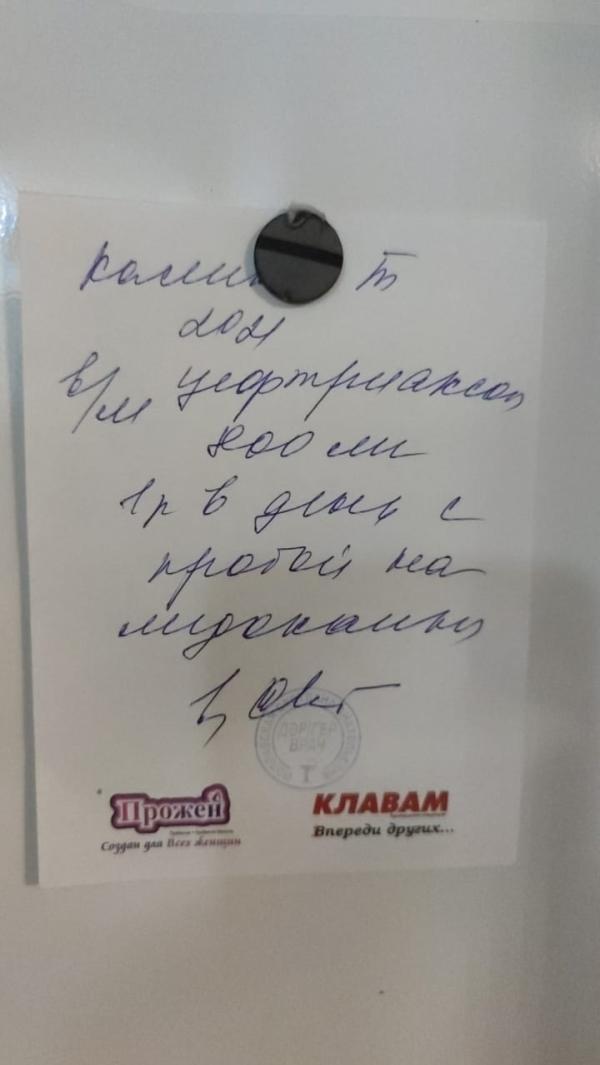 Т
2021
в/м цефтриаксон
800 мл
1 р в день с
пробой на
лидокаин
ДӘРІГЕР
ВРАЧ
Т
Прожей
Создан для Всех женщин
КЛАВАМ
Впереди других...